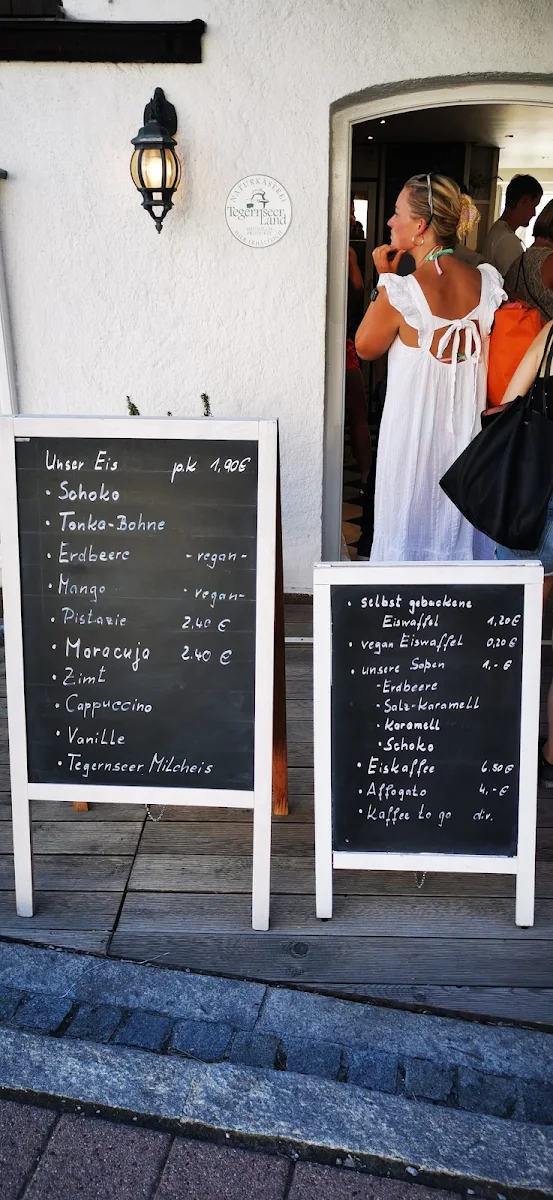 NATURKÄSEREI
Tegernseer
Land
Unser Eis p.K 1,90€
• Schoko
• Tonka-Bohne
• Erdbeere -vegan-
• Mango -vegan-
• Pistazie 2.40 €
• Maracuja 2.40 €
• Zimt
• Cappuccino
• Vanille
• Tegernseer Milcheis
• selbst gebackene
Eiswaffel 1,20€
• vegan Eiswaffel 0,20€
• unsere Soßen 1,-€
-Erdbeere
•Salz-Karamell
•Karamell
•Schoko
• Eiskaffee 6.80€
• Affogato 4,-€
• Kaffee to go div.